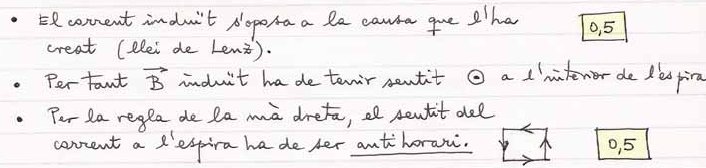 • El corrent induït s'oposa a la causa que l'ha
creat (llei de Lenz). 0,5
• Per tant B⃗ induït ha de tenir sentit ⊙ a l'interior de l'espira
• Per la regla de la mà dreta, el sentit del
corrent a l'espira ha de ser antihorari. 0,5